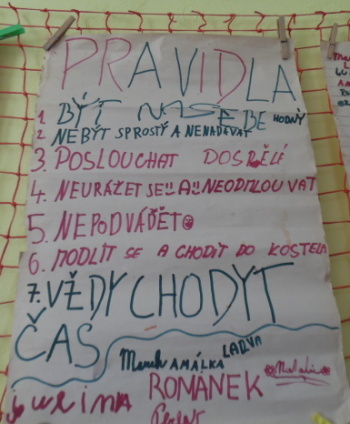 PRAVIDLA
1. BÝT NA SEBE HODNÝ
2. NEBÝT SPROSTÝ A NENADÁVAT
3. POSLOUCHAT DOSPĚLÉ
4. NEURÁŽET SE!! A!! NEODMLOUVAT
5. NEPODVÁDĚT
6. MODLIT SE A CHODIT DO KOSTELA
7. VŽDY CHODYT
ČAS
Marek AMÁLKA LADYA
ROMÁNEK